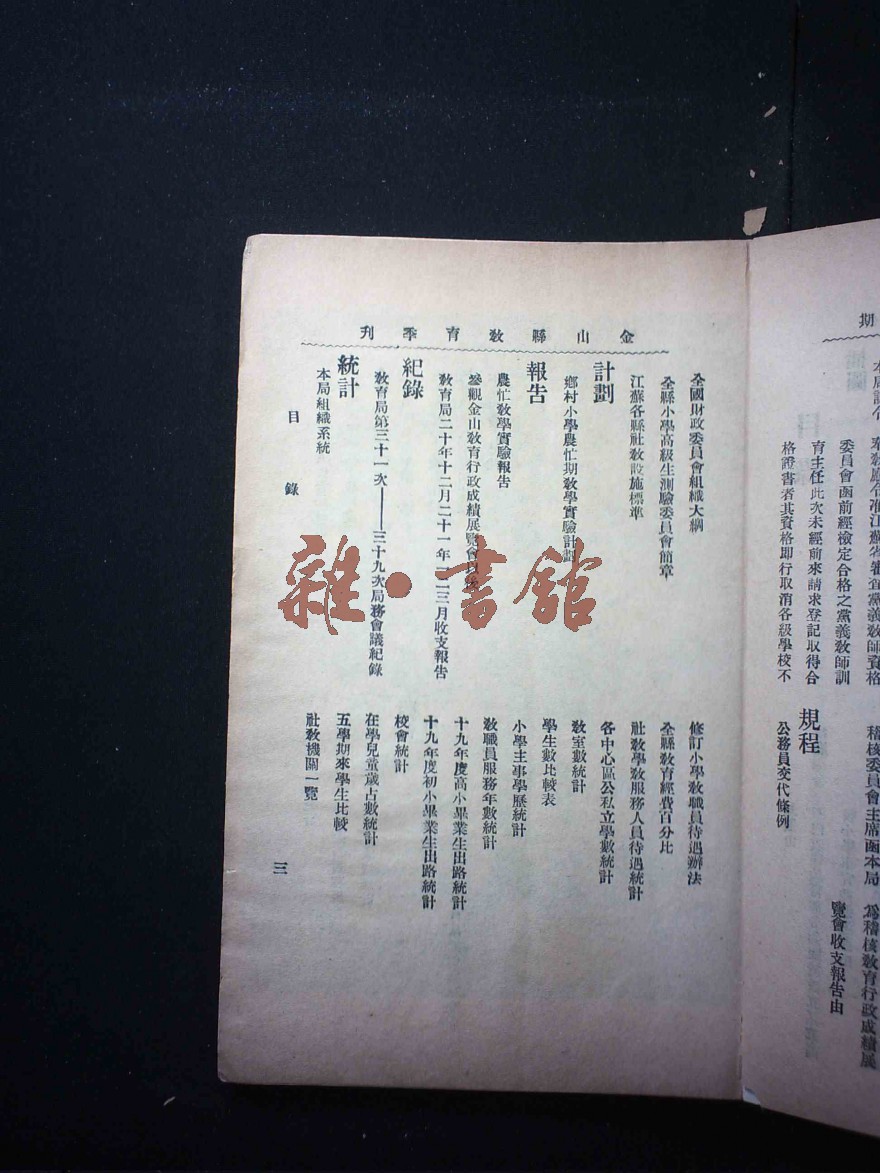 期
本局訓令 奉教廳令准江蘇省審查黨義教師資格
委員會函前經檢定合格之黨義教師訓
育主任此次未經前來請求登記取得合
格證書者其資格即行取消各級學校不
稽核委員會主席函本局 爲稽核教育行政成績展
覽會收支報告由
規程
公務員交代條例
金山縣教育季刊
全國財政委員會組織大綱
全縣小學高級生測驗委員會簡章
江蘇各縣社教設施標準
計劃
鄉村小學農忙期教學實驗計劃
報告
農忙教學實驗報告
參觀金山教育行政成績展覽會以後
教育局二十年十二月二十一年一二三月收支報告
紀錄
教育局第三十一次——三十九次局務會議紀錄
統計
本局組織系統
修訂小學教職員待遇辦法
全縣教育經費百分比
社教學教服務人員待遇統計
各中心區公私立學數統計
教室數統計
學生數比較表
小學主事學歷統計
教職員服務年數統計
十九年度高小畢業生出路統計
十九年度初小畢業生出路統計
校會統計
在學兒童歲占數統計
五學期來學生比較
社教機關一覽
目錄
三
雜·書館